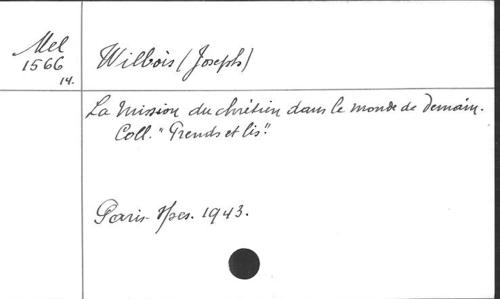 Mel
1566
14.
Wilbois (Joseph)
La Mission du chrétien dans le monde de demain.
Coll. "Prends et lis".
Paris Spes. 1943.